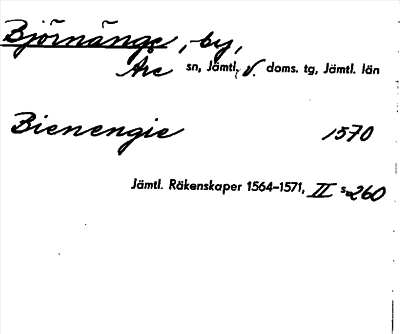 Björnänge, by,
Åre sn, Jämtl. v. doms. tg, Jämtl. län
Bienengie 1570
Jämtl. Räkenskaper 1564–1571, II s. 260